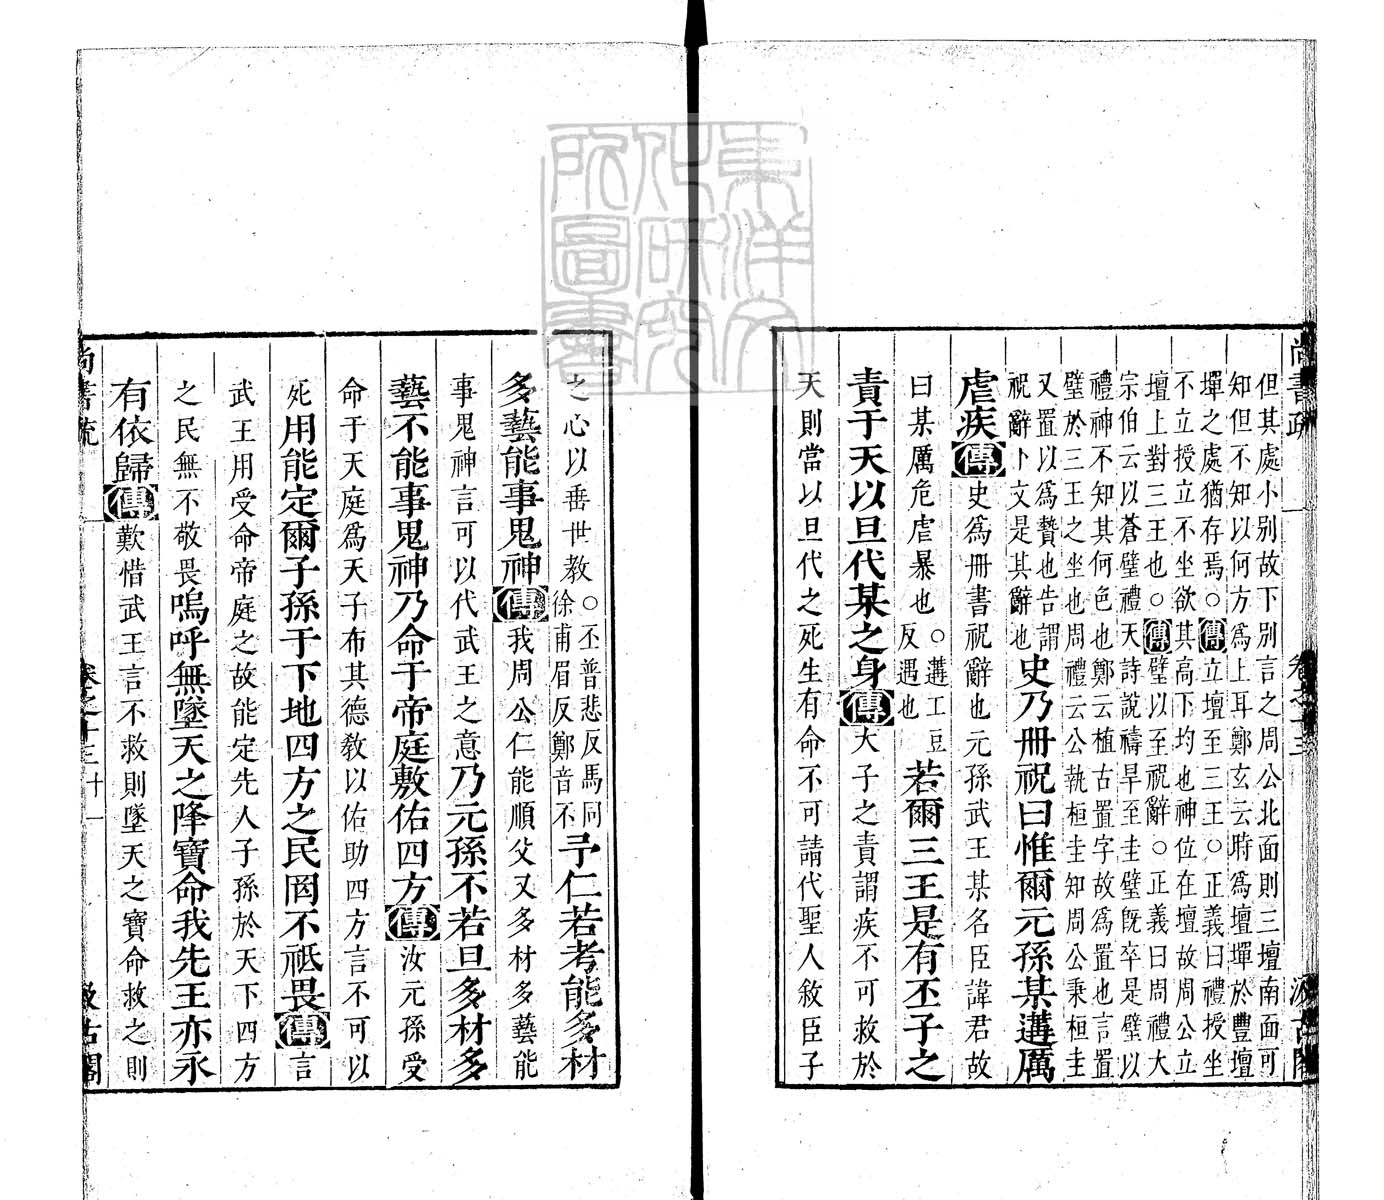 尚書疏
卷之十三
汲古閣
但其處小別故下別言之周公北面則三壇南面可
知但不知以何方爲上耳鄭玄云時爲壇墠於豐壇
墠之處猶存焉○傳立壇至三王○正義曰禮授坐
不立授立不坐欲其高下均也神位在壇故周公立
壇上對三王也○傳璧以至祝辭○正義曰周禮大
宗伯云以蒼璧禮天詩說禱旱至圭璧旣卒是璧以
禮神不知其何色也鄭云植古置字故爲置也言置
璧於三王之坐也周禮云公執桓圭知周公秉桓圭
又置以爲贄也告謂
祝辭卜文是其辭也
史乃冊祝曰惟爾元孫某遘厲
虐疾傳史爲冊書祝辭也元孫武王某名臣諱君故
曰某厲危虐暴也○遘工豆
反遇也
若爾三王是有丕子之
責于天以旦代某之身傳大子之責謂疾不可救於
天則當以旦代之死生有命不可請代聖人敘臣子
之心以垂世教○丕普悲反馬同
徐甫眉反鄭音不
予仁若考能多材
多藝能事鬼神傳我周公仁能順父又多材多藝能
事鬼神言可以代武王之意乃元孫不若旦多材多
藝不能事鬼神乃命于帝庭敷佑四方傳汝元孫受
命于天庭爲天子布其德教以佑助四方言不可以
死用能定爾子孫于下地四方之民罔不祗畏傳言
武王用受命帝庭之故能定先人子孫於天下四方
之民無不敬畏嗚呼無墜天之降寶命我先王亦永
有依歸傳歎惜武王言不救則墜天之寶命救之則
尚書疏
卷之十三
十一
汲古閣
東洋文
化研究
所圖書